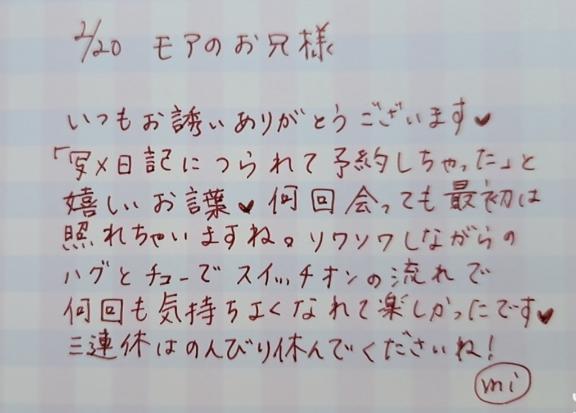 2/20 モアのお兄様
いつもお誘いありがとうございます♥
「写メ日記につられて予約しちゃった」と
嬉しいお言葉♥何回会っても最初は
照れちゃいますね。ソワソワしながらの
ハグとチューでスイッチオンの流れで
何回も気持ちよくなれて楽しかったです♥
三連休はのんびり休んでくださいね!
mi